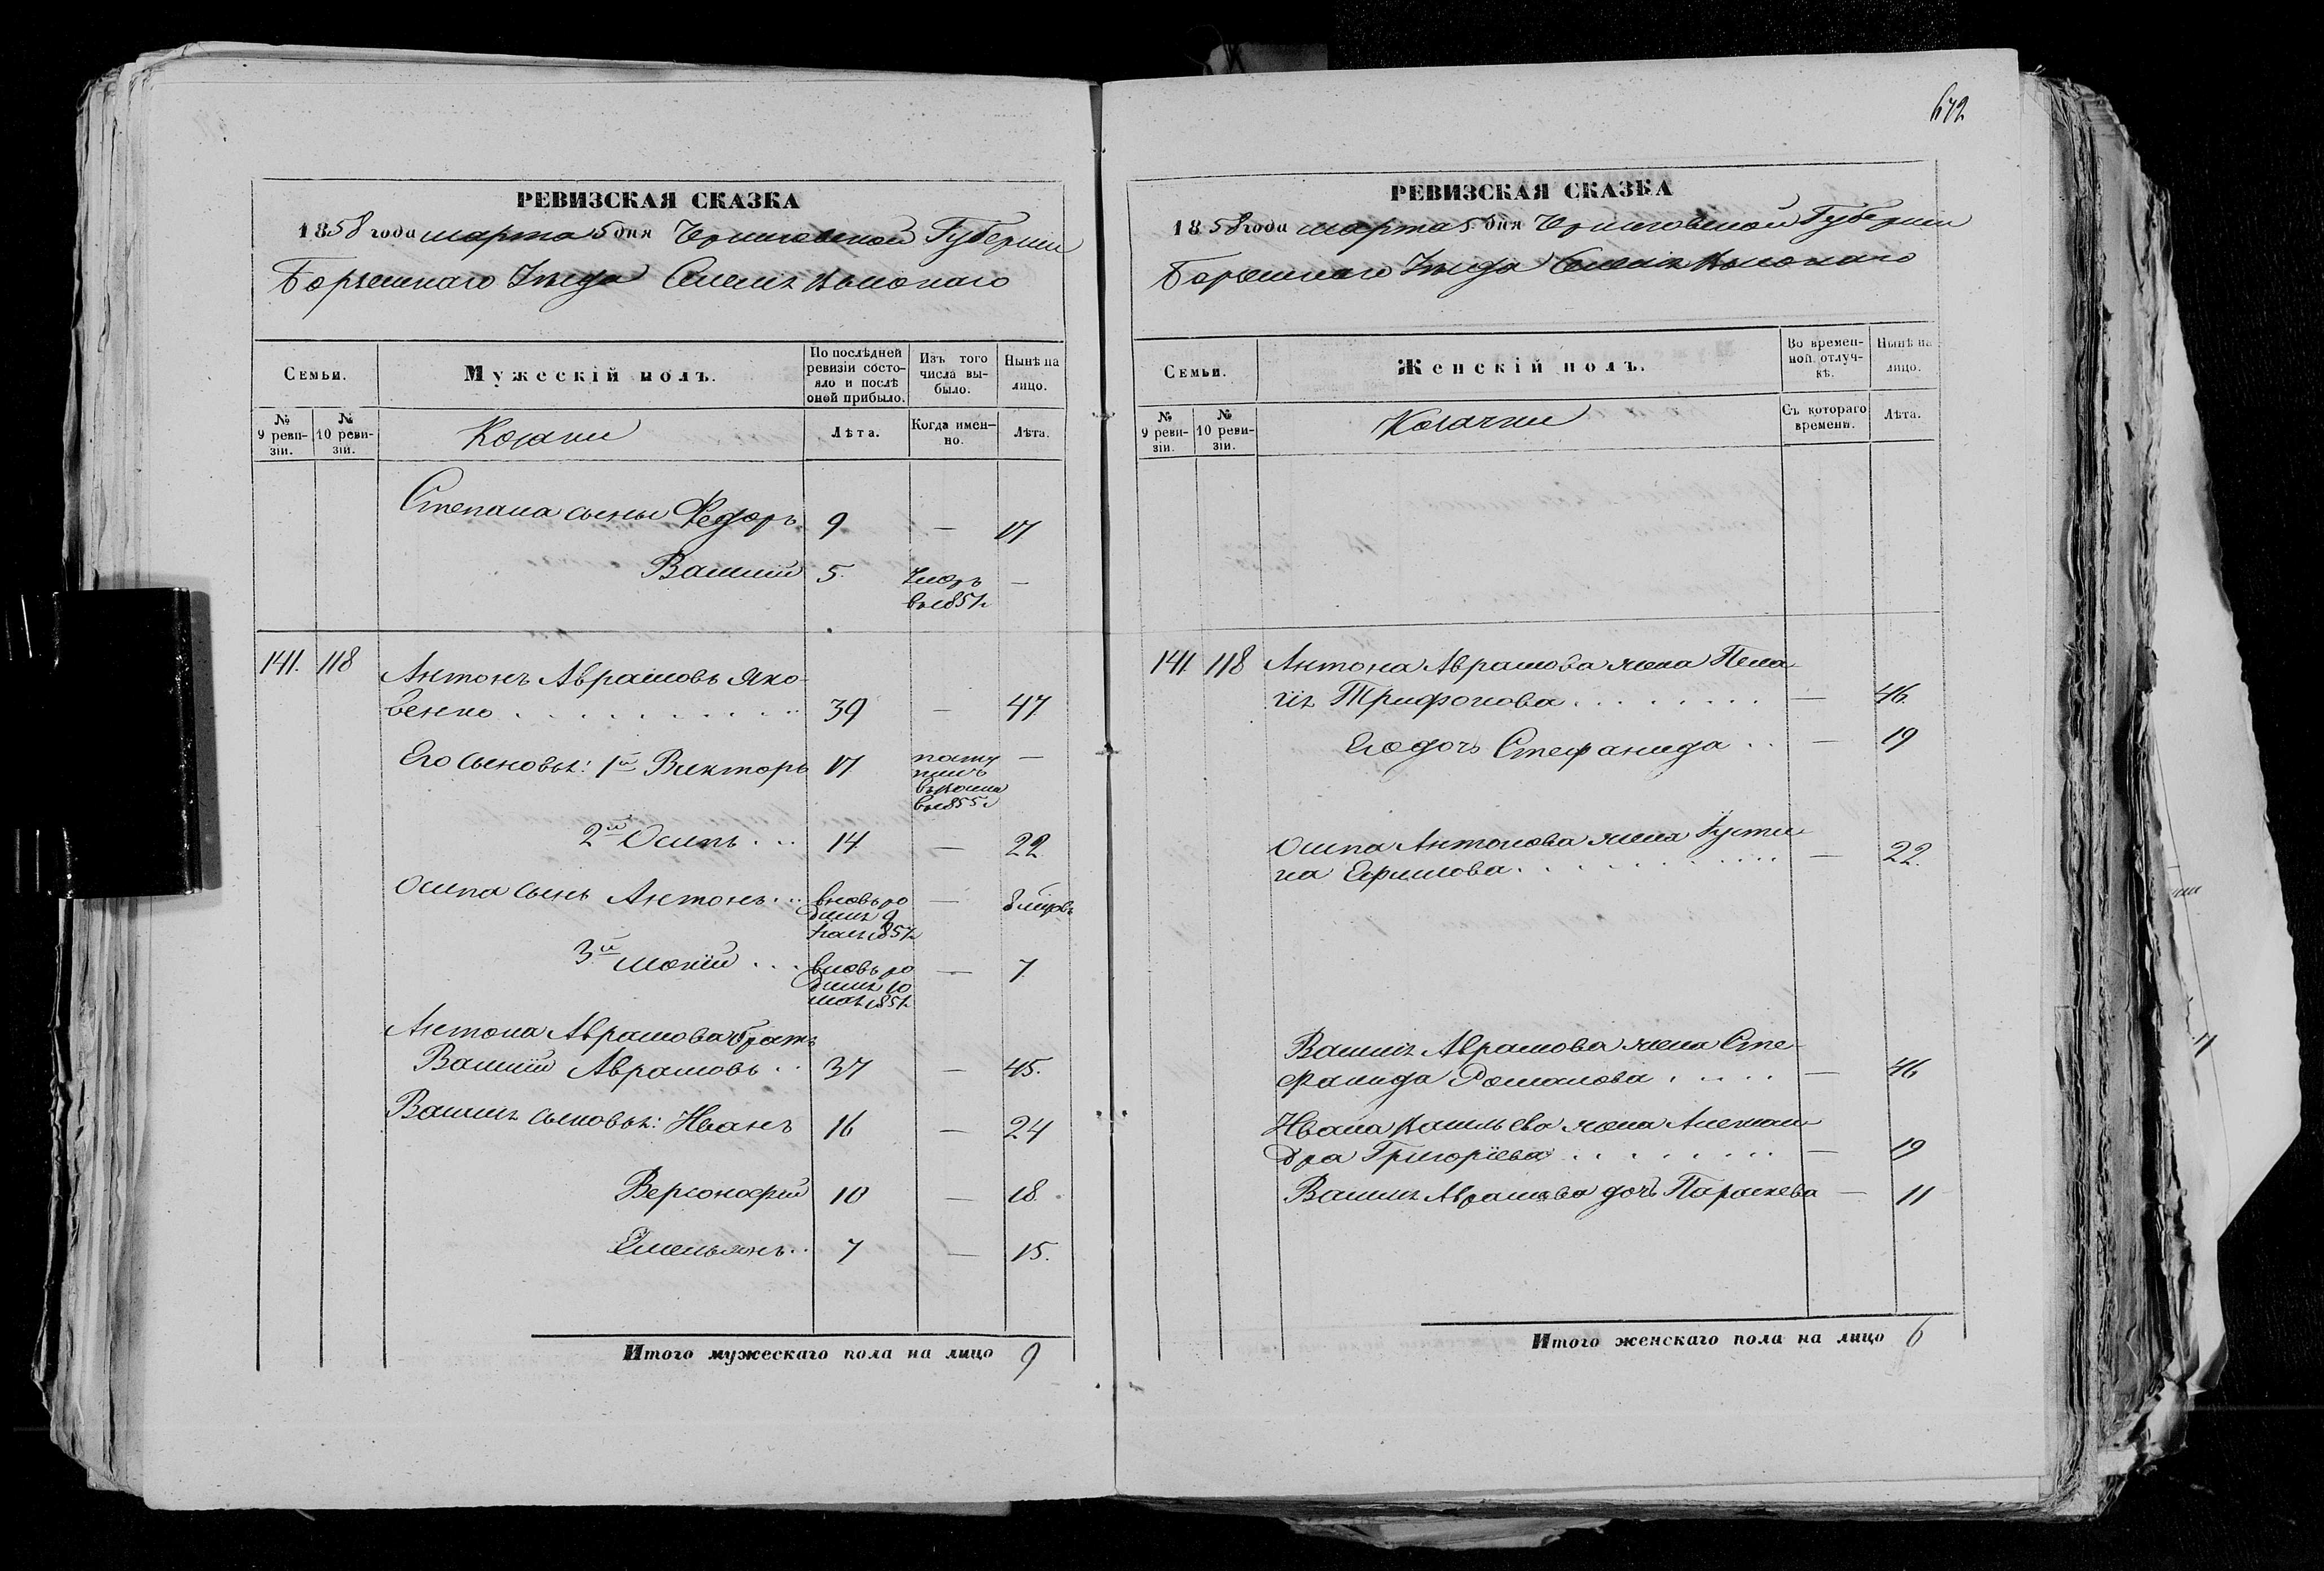 РЕВИЗСКАЯ СКАЗКА
1858 года марта 5 дня Черниговской Губерніи
Борзенскаго Уѣзда Селенія Высокаго
Семьи.
Мужескій полъ.
По послѣдней ревизіи состо-
яло и послѣ
оной прибыло.
Изъ того
числа вы-
было.
Нынѣ на
лицо.
№
9 реви-
зіи.
№
10 реви-
зіи.
Козаки
Лѣта.
Когда имен-
но.
Лѣта.
Степана сыны Федоръ 9 — 17
Василій 5. Умеръ —
въ 1857г
141. 118 Антонъ Аврамовъ Яко-
венко 39 — 47
Его сыновья: 1й Викторъ 17 посту —
пилъ
въ 1855г
2й Осипъ 14 — 22
Осипа сынъ Антонъ вновь ро — 8 мѣсяцовъ
дился 9
1857г
3й Мокій вновь ро — 7
дился 10
мая 1851г
Антона Аврамова братъ
Василій Аврамовъ 37 — 45.
Василія сыновья: Иванъ 16 — 24
Версонофій 10 — 18.
Емельянъ 7 — 15.
Итого мужескаго пола на лицо 9
672
РЕВИЗСКАЯ СКАЗКА
1858 года марта 5 дня Черниговской Губерніи
Борзенскаго Уѣзда Селенія Высокаго
Семьи.
Женскій полъ.
Во времен-
ной отлуч-
кѣ.
Нынѣ на
лицо.
№
9 реви-
зіи.
№
10 реви-
зіи.
Козачки
Съ котораго
времени.
Лѣта.
141 118 Антона Аврамова жена Пела-
гія Трифонова — 46.
Его дочь Стефанида — 19
Осипа Антонова жена Густи-
на Ефимова — 22.
Василія Аврамова жена Сте-
фанида Романова — 46
Ивана Васильева жена Алексан-
дра Григоріева — 19
Василія Аврамова дочь Параскева — 11
Итого женскаго пола на лицо 6